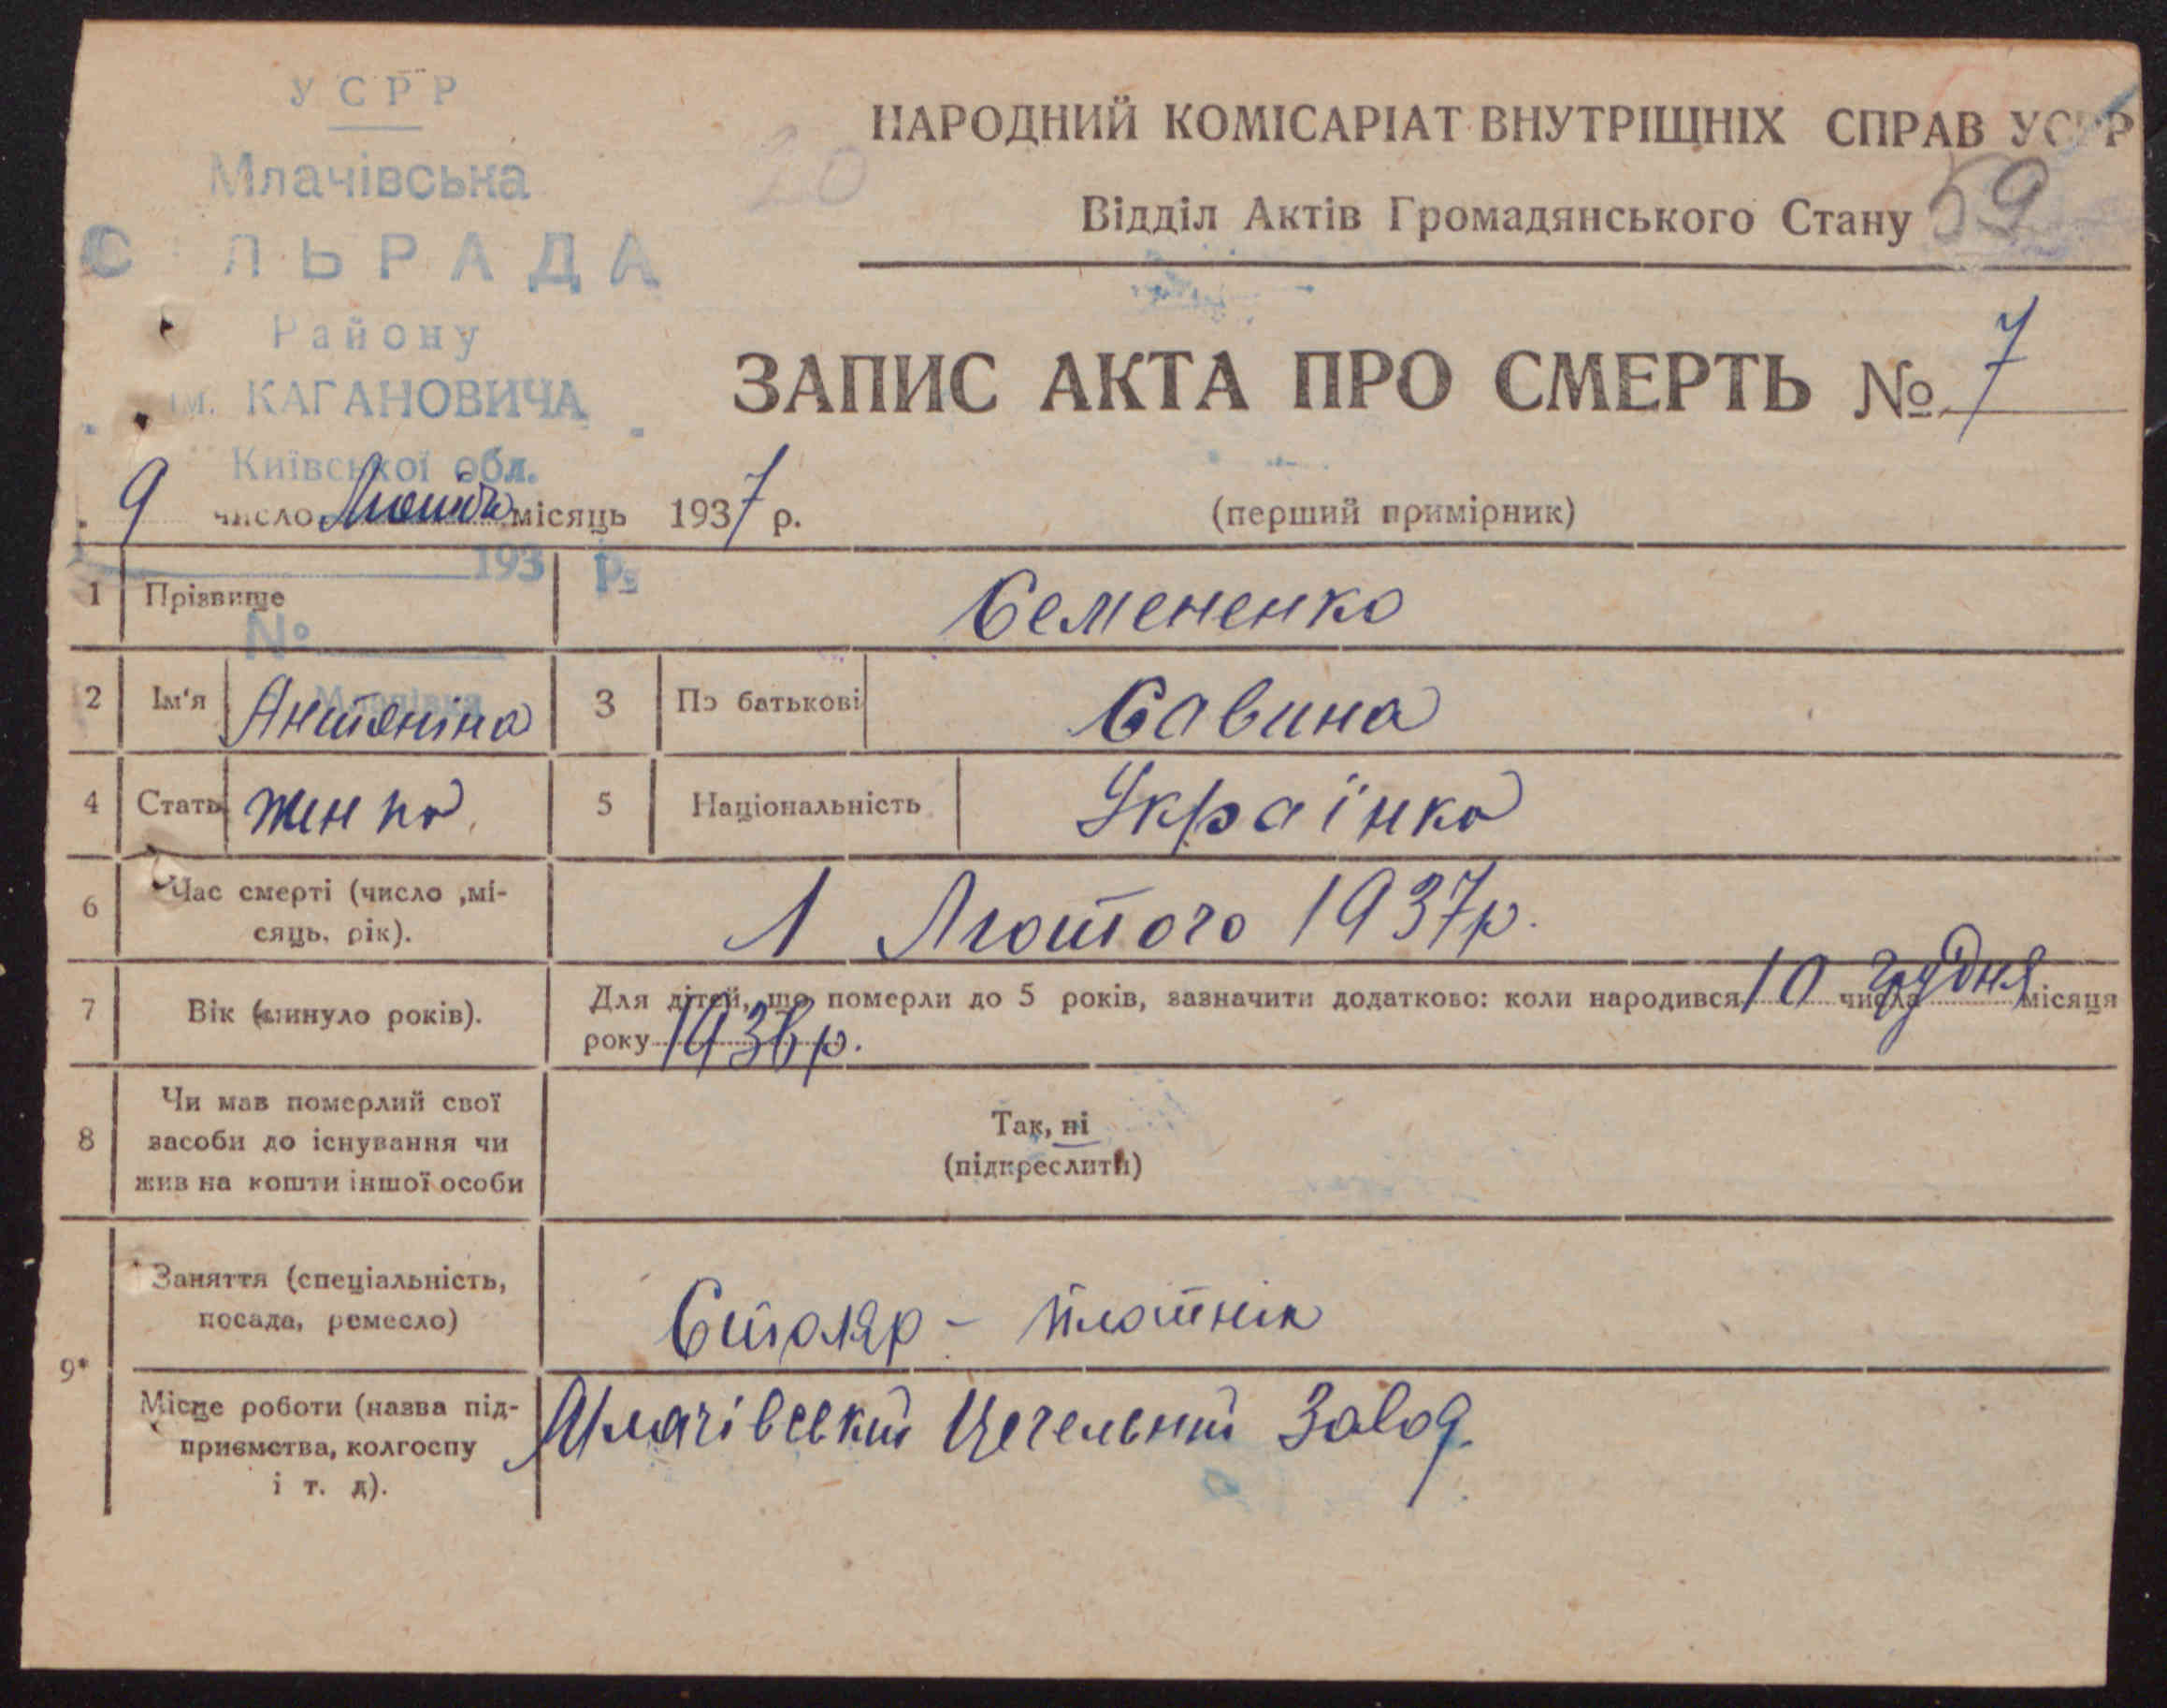 УСРР
Млачівська
С ЛЬРАДА
Району
ім. КАГАНОВИЧА
Київської обл.
193 р.
№
20
НАРОДНИЙ КОМІСАРІАТ ВНУТРІШНІХ СПРАВ УСРР
Відділ Актів Громадянського Стану
59
ЗАПИС АКТА ПРО СМЕРТЬ № 7
9 число місяць 1937 р.
(перший примірник)
1 Прізвище Семененко
2 Ім'я Антоніна 3 По батькові Савина
4 Стать женка 5 Національність Українка
6 Час смерті (число ,мі-
сяць, рік). 1 Лютого 1937р.
7 Вік (минуло років). Для дітей, що померли до 5 років, зазначити додатково: коли народився 10 числа грудня місяця
року 1936р.
8 Чи мав померлий свої
засоби до існування чи
жив на кошти іншої особи
Так, ні
(підкреслити)
9*
Заняття (спеціальність,
посада, ремесло) Столяр - плотнік
Місце роботи (назва під-
приємства, колгоспу
і т. д). Млачівський Цегельний Завод.